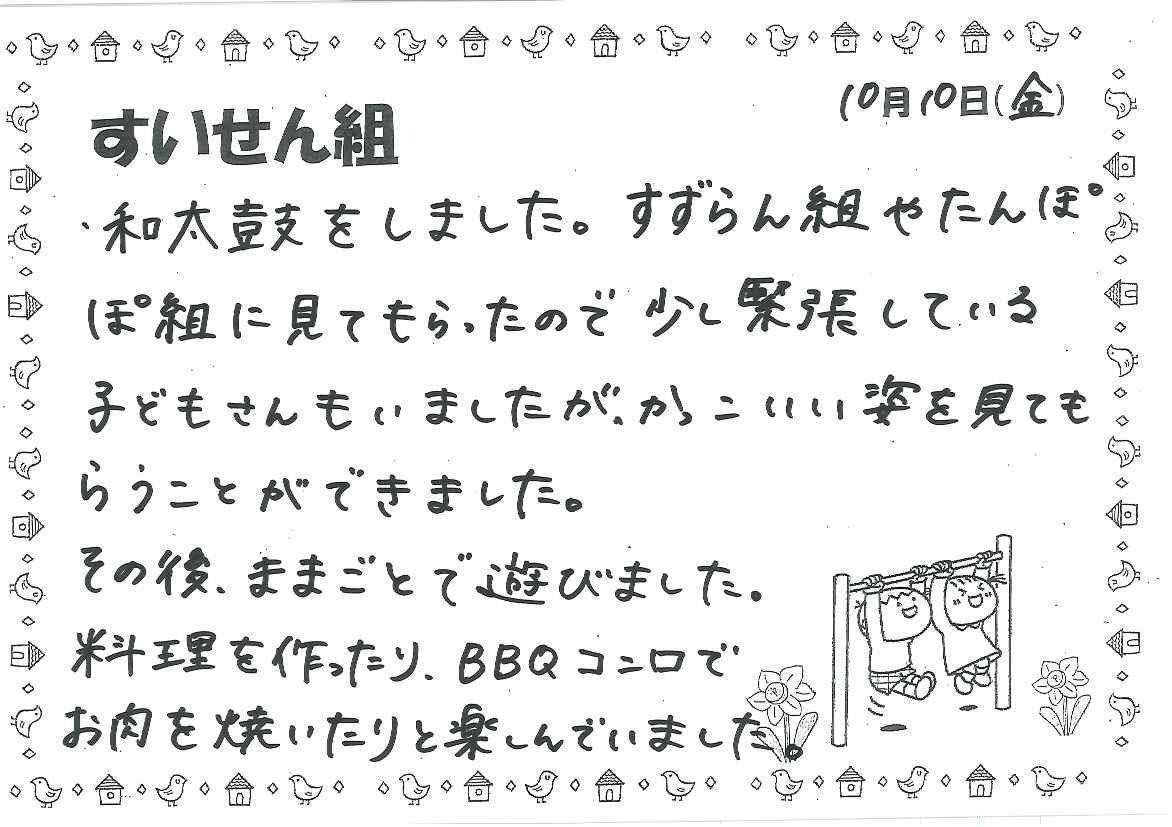 10月10日(金)
すいせん組
・和太鼓をしました。すずらん組やたんぽ
ぽ組に見てもらったので少し緊張している
子どもさんもいましたが、かっこいい姿を見ても
らうことができました。
その後、ままごとで遊びました。
料理を作ったり、BBQコンロで
お肉を焼いたりと楽しんでいました。